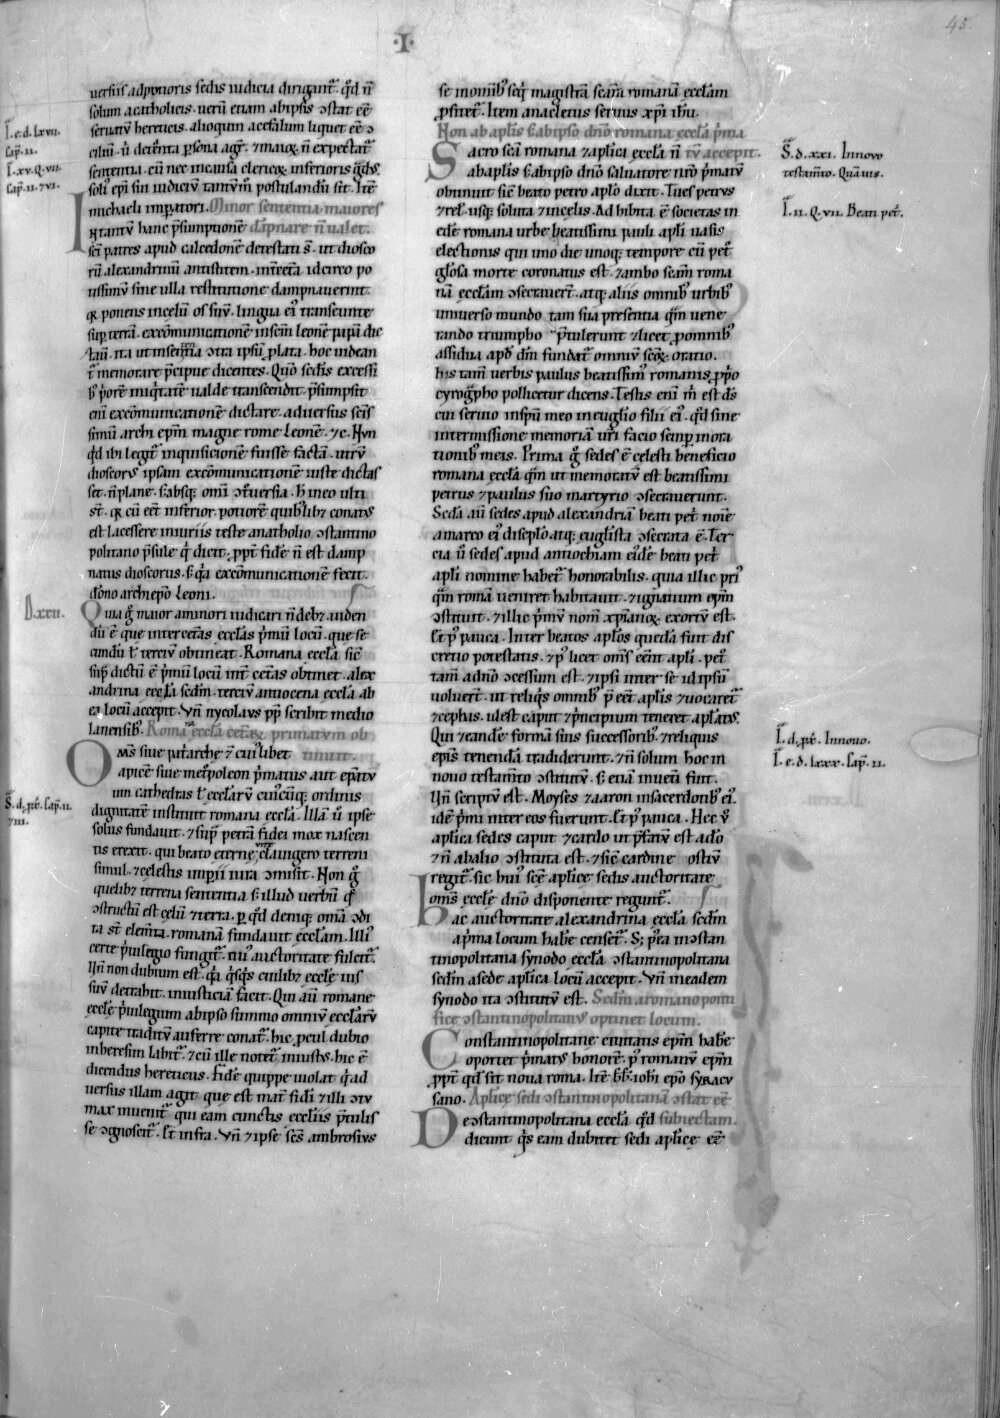 45
·I·
uersiis ad potioris sedis iudicia dirigunt᷑. qd̄ n̄
solum a catholicis. uerū etiam ab ipsis ↄstat eē
seruatū hereticis. alioquin acefalum liquet eē ↄ
ciliū. ū detenta p̱sona agr᷑.
sententia. cū nec in causa clericoꝝ inferioris g̊dus
soli ep̄i sin iudiciū tantūm̄ postulandū sit. Itē
michaeli imp̱atori. Minor sententia maiores
Intantū hanc p̄sumptionē dāpnare n̄ ualet.
sc̄i patres apud calcedonē detestati s̄. ut diosco
rū alexandrinū antistitem. idcirco po
tissimū sine ulla restitutione dampnauerint.
qꝛ ponens in celū os suū. lingua ei᷒ transeunte
sup̱ terrā. excōmunicationē in sc̄m leonē papā dic
tauit. ita ut in sententia ↄtra ipsū p̱lata. hoc uidean
t᷑ memorare p̄cipue dicentes. Quō sedis excessi
b᷒ p̍orē
enī excōmunicationē dictare. aduersus scīs
simū archi ep̄m magne rome leonē. ⁊c. Nun
qd̄ ibi legit᷑ inquisicionē fuisse factā. utrū
dioscorus ipsam excōmunicationē iuste dictas
set. n̄ plane. s; absq; omī ↄt̊uersia. h̄ in eo ulti
st̄. qꝛ cū eēt inferior. potiorē quib᷒lib; conatus
est lacessere iniuriis teste anatholio ↄstantino
politano p̄sule q̍ dicit. pp̱t fidē n̄ est damp
natus dioscorus. s; q̍a excōmunicationē fecit.
dōno archiep̄o Leoni.
Quia g̊ maior a minori iudicari n̄ deb;. uiden
dū ē que inter cetas ecclas p̍mū locū. que se
cundū ł terciū obtineat. Romana eccla sic̄
sup̱ dictū ē p̍mū locū int̄ cetas obtinet. alex
andrina eccla sed̄m. terciū antiocena eccla ab
ea locū accepit. Vn̄ nycolaus pp̄ scribit medio
lanensib᷒. Romana eccla ceteraꝝ primatum ob
Om̄s siue pat̍arche ⁊ cui᷒libet tinuit.
apicē siue met̍poleon p̍matus aut ep̄atū
uin cathedras ł ecclarū cui᷒cūq; ordinis
dignitatē instituit romana eccla. Illā ū ipse
solus fundauit. ⁊ sup̱ petrā fidei mox nascen
tis erexit. qui beato eternę uitę clauigero terreni
simul. ⁊ celestis imp̱ii iura ↄmisit. Non g̊
quelib; terrena sententia s; illud uerbū q̊
ↄstructū est celū ⁊ terra. p̱ qd̄ demq; omīa ↄdi
ta st̄ elem̄ta. romanā fundauit ecclam. Illi᷒
certe p̍uilegio fungit᷑. illi᷒ auctoritate fulcit᷑.
Vn̄ non dubium est. q̍a q̍sq̍s cuilib; ecclę ius
suū detrahit. iniusticiā facit. Qui aū romane
ecclę p̍uilegium ab ipso summo omniū ecclarū
capite traditū auferre conat᷑. hic p̱cul dubio
in heresim labit᷑. ⁊ cū ille notet᷑ iniustus. hic ē
dicendus hereticus. fidē quippe uiolat q̍ ad
uersus illam agit que est mat̄ fidei ⁊ illi ↄtu
max inuenit᷑ qui eam cunctis ecclesiis p̄tulis
se ↄgnoscit᷑. Et infra. Vn̄ ⁊ ipse sc̄s ambrosius
se in omib᷒ seq̍ magistrā scām romanā ecclam
p̱fitet᷑. Item anacletus seruus xp̄i ih̄u.
Non ab ap̄lis s; ab ipso dn̄o romana eccla p̍ma
Sacro scā romana ⁊ ap̄lica eccla n̄ tū accepit.
ab ap̄lis s; ab ipso dn̄o saluatore nr̄o p̍matū
obtinuit sic̄ beato petro ap̄lo dixit. Tu es petrus
⁊ rel̄. usq; soluta ⁊ in celis. Adhibita ē societas in
eadē romana urbe beatissimi pauli ap̄li uasis
electionis qui uno die unoq; tempore cū pet̊
gl̄osa morte coronatus est. ⁊ ambo scām roma
nā ecclam ↄsecrauert̄. atq; aliis omnib᷒ urbib᷒
in uniuerso mundo tam sua presentia q̄m uene
rando triumpho p̄tulerunt ⁊ licet p̱ omnib᷒
assidua apd̄ dm̄ fundat᷑ omniū scōꝝ oratio.
his tam̄ uerbis paulus beatissim᷒ romanis p̱p̍o
cyrog̍pho pollicetur dicens. Testis enī m̍ est ds̄
cui seruio in sp̄u meo in euglio filii ei᷒. qd̄ sine
intermissione memoriā ur̄i facio semp̱ in ora
tionib᷒ meis. Prima g̊ sedes ē celesti beneficio
romana eccla q̄m ut memoratū est beatissimi
petrus ⁊ paulus suo martyrio ↄsecrauerunt.
Secda aū sedes apud alexandriā beati pet̍ noīe
a marco ei᷒ discip̄lo atq; euglista ↄsecrata ē. Ter
cia ū sedes apud antiochiam ei᷒dē beati pet̍
ap̄li nomine habet᷑ honorabilis. quia illic pri᷒
q̄m romā ueniret habitauit. ⁊ ignatium ep̄m
ↄstituit. ⁊ illic p̍mū nom̄ xp̄ianoꝝ exortū est.
Et p᷒ pauca. Inter beatos ap̄los quedā fuit dis
cretio potestatis. ⁊ p᷒ licet om̄s eent ap̄li. pet̊
tam̄ a dn̄o ↄcessum est. ⁊ ipsi inter se id ipsū
uoluert̄. ut reliq̍s omnib᷒ p̄ eēt ap̄lis ⁊ uocaret᷑
⁊ cephas. id est caput ⁊ p̍ncipium teneret ap̄lat᷒.
Qui ⁊ eandē formā suis successorib᷒ ⁊ reliquis
ep̄is tenendā tradiderunt. ⁊ n̄ solum hoc in
nouo testam̄to ↄstitutū. s; etiā in ueti fuit.
Vn̄ scriptū est. Moyses ⁊ aaron in sacerdotib᷒ ei᷒.
idē p̍mi inter eos fuerunt. Et p᷒ pauca. Hec ū
ap̄lica sedes caput ⁊ cardo ut p̄fatū est a dn̄o
⁊ n̄ ab alio ↄstituta est. ⁊ sic̄ cardine ostiū
regit᷑. sic hui᷒ sc̄e ap̄lice sedis auctoritate
om̄s ecclę dn̄o disponente regunt᷑.
hac auctoritate alexandrina eccla sedm̄
a p̍ma locum habe censet᷑. S; p᷒ea in ↄstan
tinopolitana synodo eccla ↄstantinopolitana
sedm̄ a sede ap̄lica locū accepit. Vn̄ in eadem
synodo ita ↄstitutū est. Sedm̄ a romano ponti
fice ↄstantinopolitanus optinet locum.
Constantinopolitane ciuitatis ep̄m habē
oportet p̍matus honorē. p᷒ romanū ep̄m
pp̱t qd̄ sit noua roma. Itē ioh̄i ep̄o syracu
sano. Ap̄lice sedi ↄstantinopolitanā ↄstat eē
De ↄstantinopolitana eccla qd̄ subiectam.
dicunt q̍s eam dubitet sedi ap̄licę eē
I. e. d. lxvii.
cap̄. ii.
I. xv. Q. vii.
cap̄. ii. ⁊ vi.
D. xxii.
S̄. d. p̱x̄. cap̄. ii.
⁊ iii.
S̄. d. xxi. Innouo
testam̄to. Quāuis.
I. ii. Q. vii. Beati pet̍.
I. d. p̱x̄. Innouo.
I. e. d. lxxx. cap̄. ii.